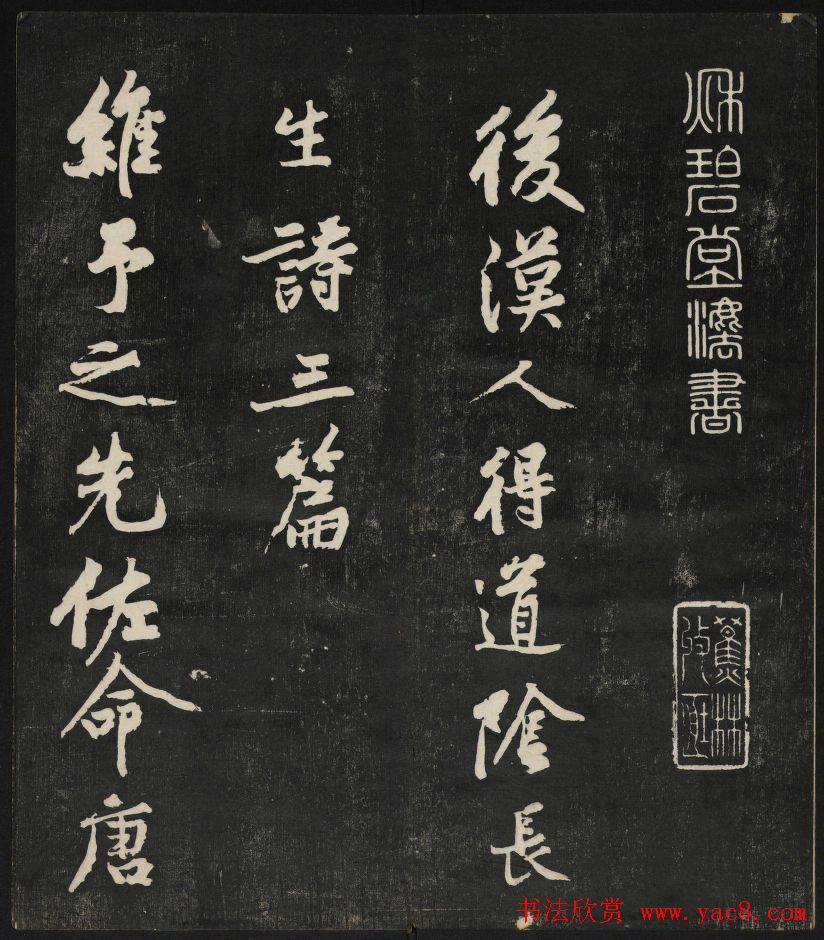 秋碧堂法書
後漢人得道陰長
生詩三篇
維予之先佐命唐
书法欣赏 www.yac8.com